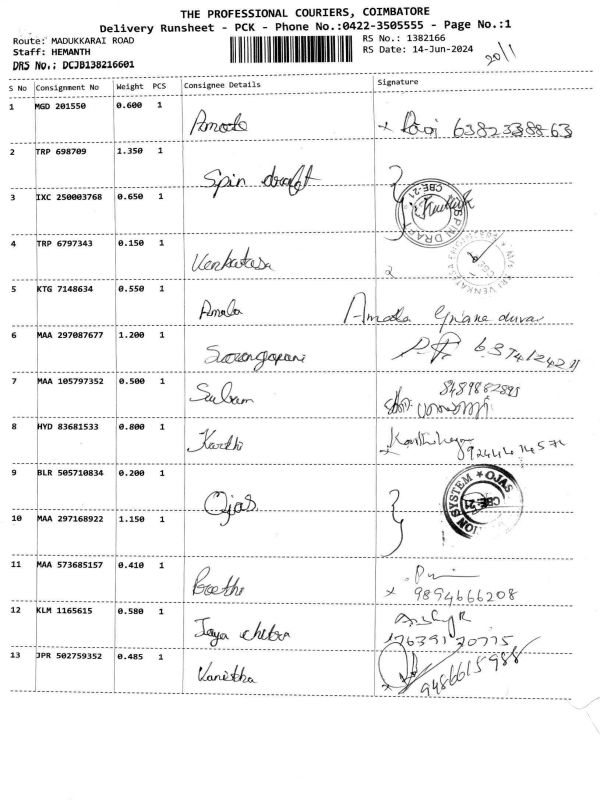 THE PROFESSIONAL COURIERS, COIMBATORE
Delivery Runsheet - PCK - Phone No.:0422-3505555 - Page No.:1
Route: MADUKKARAI ROAD RS No.: 1382166
Staff: HEMANTH RS Date: 14-Jun-2024
DRS No.: DCJB138216601 20/1
S No Consignment No Weight PCS Consignee Details Signature
1 MGD 201550 0.600 1
Amoda x Ravi 6382338863
2 TRP 698709 1.350 1
Spin draft
3 IXC 250003768 0.650 1
SPIN DRAFT CBE-21
4 TRP 6797343 0.150 1
Venkatesa
5 KTG 7148634 0.550 1
Amala Amoda
6 MAA 297087677 1.200 1
Sarangapani
7 MAA 105797352 0.500 1
8489882895
8 HYD 83681533 0.800 1
Karthi
9 BLR 505710834 0.200 1
Ojas OJAS CBE-21
10 MAA 297168922 1.150 1
11 MAA 573685157 0.410 1
x 9894666208
12 KLM 1165615 0.580 1
Jaya chitra
13 JPR 502759352 0.485 1
Vanitha 9486615988